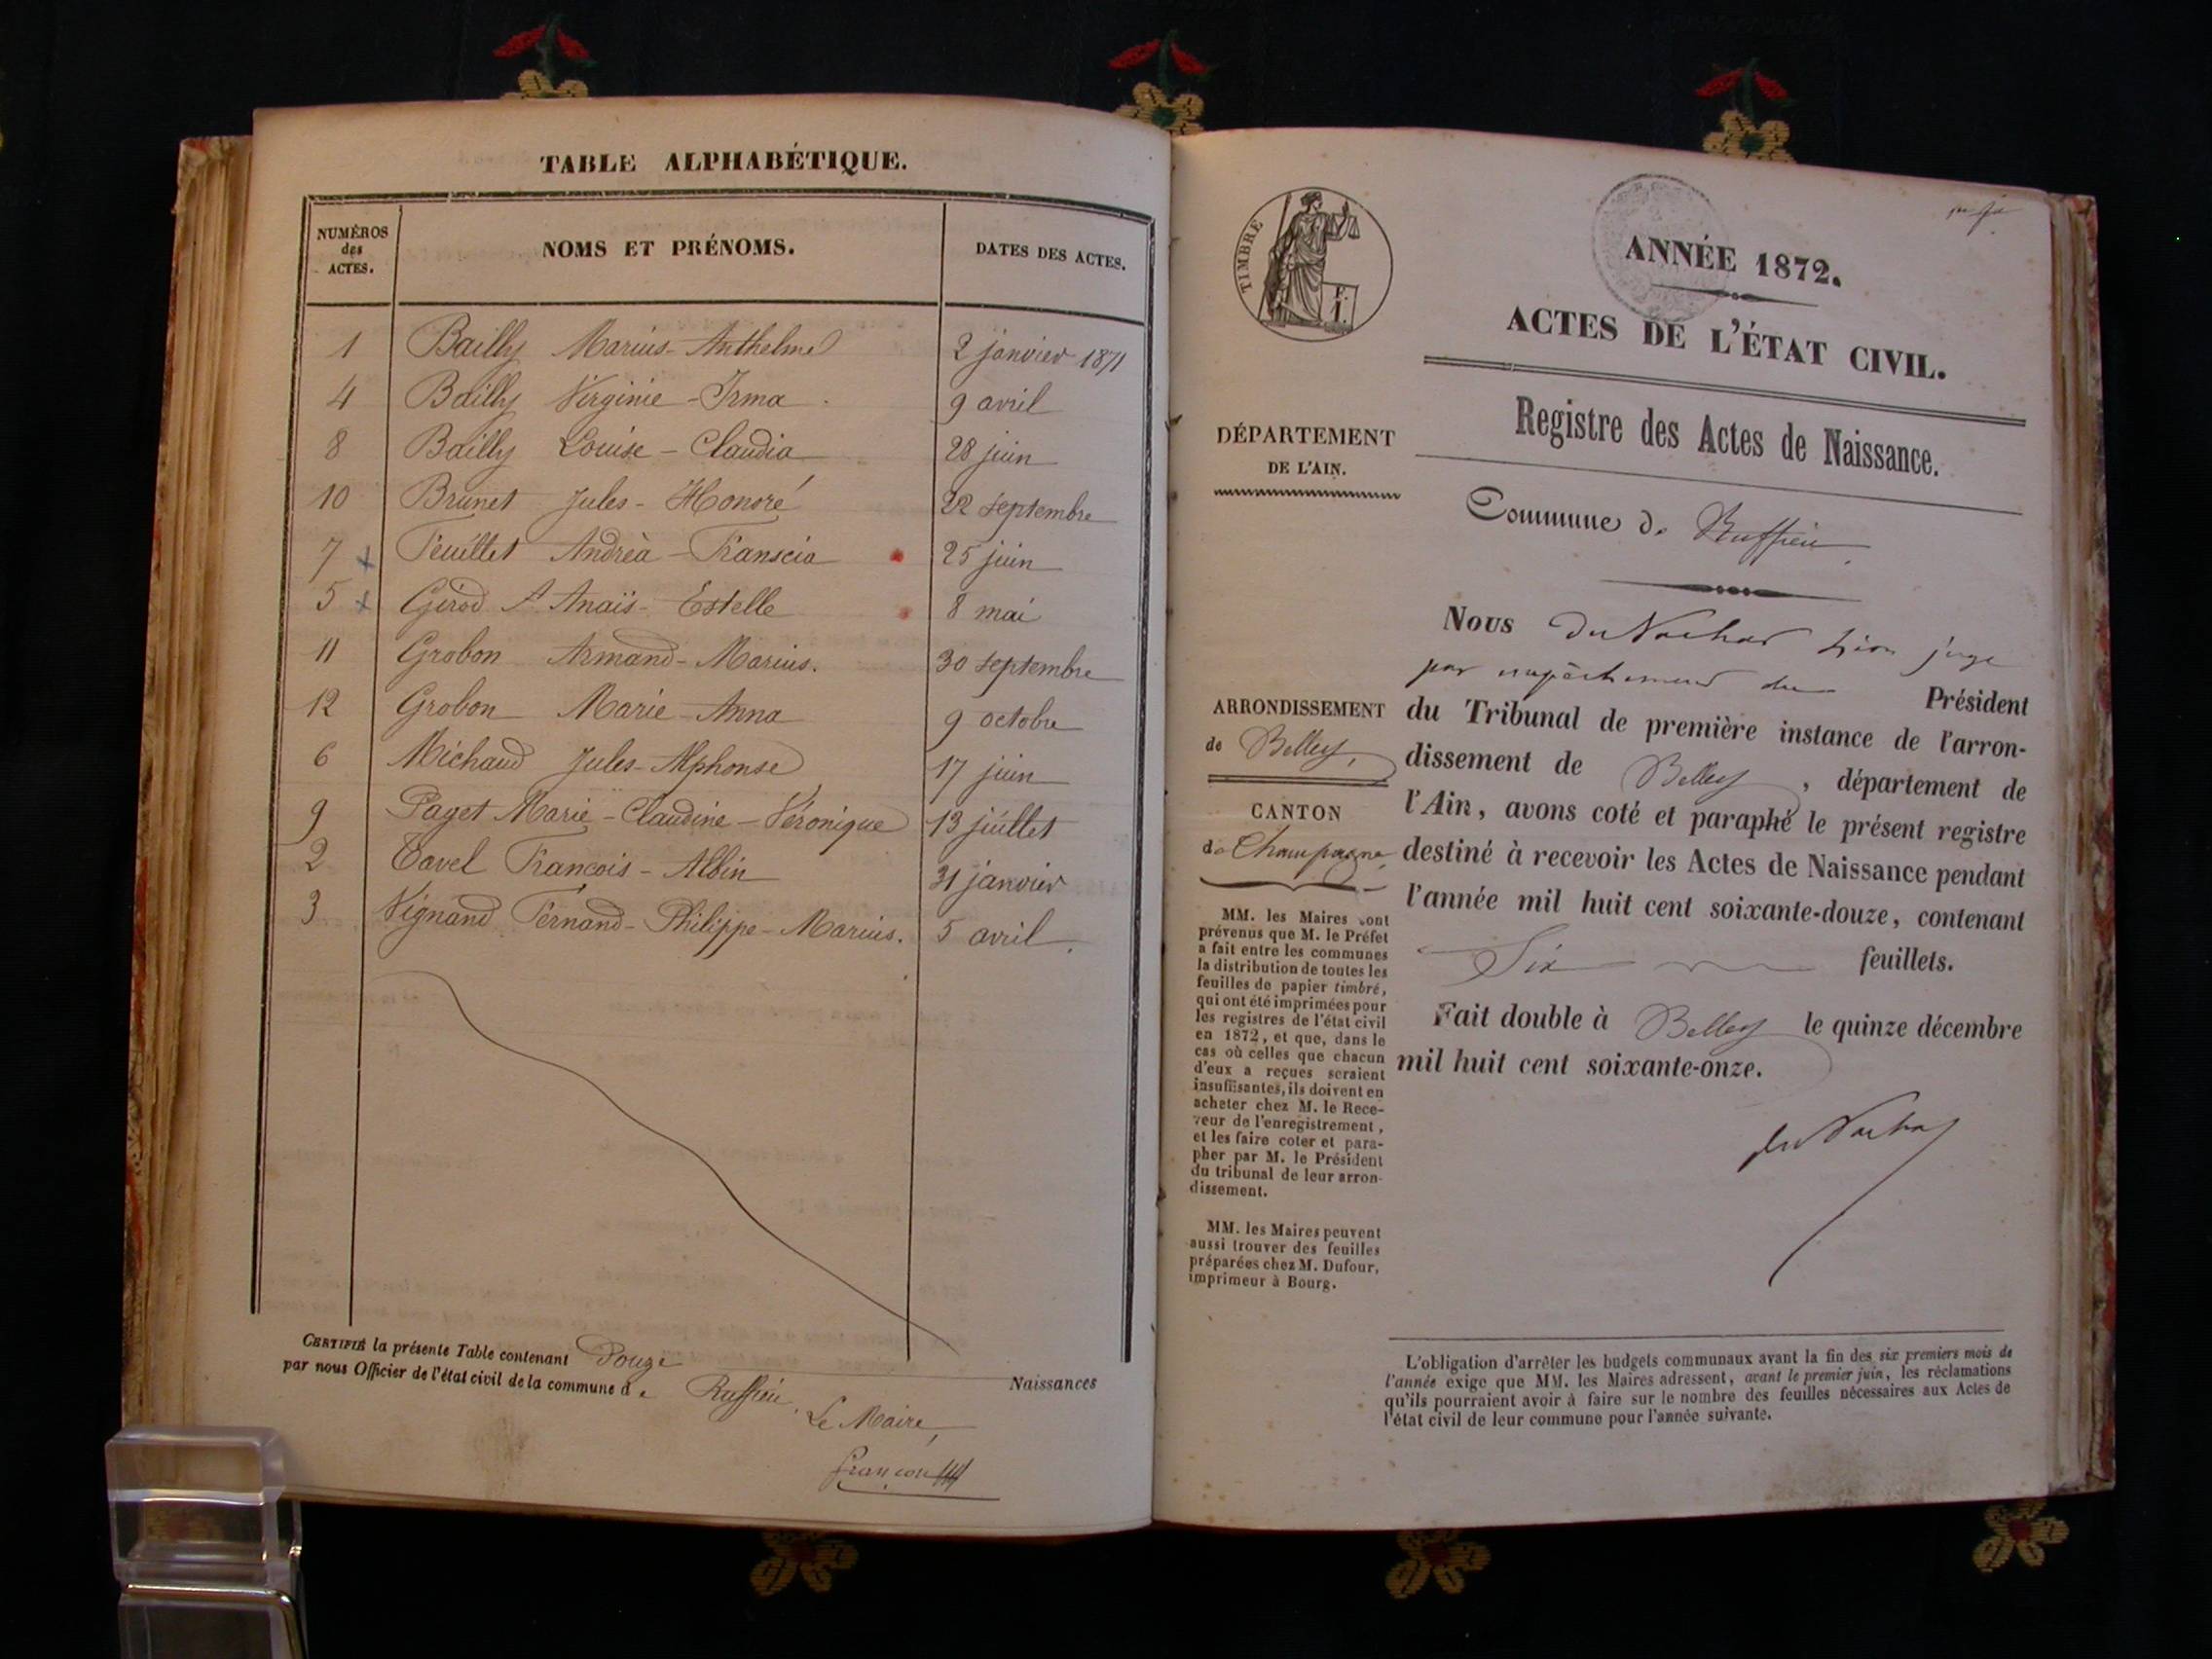 TABLE ALPHABÉTIQUE.
NUMÉROS
des
ACTES.
NOMS ET PRÉNOMS.
DATES DES ACTES.
1 Bailly Marius-Anthelme 2 janvier 1871
4 Bailly Virginie-Irma 9 avril
8 Bailly Louise-Claudia 28 juin
10 Brunet Jules-Honoré 22 septembre
7 Feuillet Andréa-Franscia 25 juin
5 Girod Anaïs-Estelle 8 mai
11 Grobon Armand-Marius. 30 septembre
12 Grobon Marie-Anna 9 octobre
6 Michaud Jules-Alphonse 17 juin
9 Paget Marie-Claudine-Véronique 13 juillet
2 Tavel Francois-Albin 31 janvier
3 Vignand Fernand-Philippe-Marius. 5 avril.
CERTIFIÉ la présente Table contenant Douze Naissances
par nous Officier de l'état civil de la commune de Ruffieu.
Le Maire,
TIMBRE
ANNÉE 1872.
ACTES DE L'ÉTAT CIVIL.
Registre des Actes de Naissance.
DÉPARTEMENT
DE L'AIN.
Commune de Ruffieu
Nous du Nachat Léon juge
par empêchement du Président
ARRONDISSEMENT
de Belley,
CANTON
de Champagne
du Tribunal de première instance de l'arron-
dissement de Belley, département de
l'Ain, avons coté et paraphé le présent registre
destiné à recevoir les Actes de Naissance pendant
l'année mil huit cent soixante-douze, contenant
Six feuillets.
Fait double à Belley le quinze décembre
mil huit cent soixante-onze.
du Nachat
MM. les Maires sont
prévenus que M. le Préfet
a fait entre les communes
la distribution de toutes les
feuilles de papier timbré,
qui ont été imprimées pour
les registres de l'état civil
en 1872, et que, dans le
cas où celles que chacun
d'eux a reçues seraient
insuffisantes, ils doivent en
acheter chez M. le Rece-
veur de l'enregistrement,
et les faire coter et para-
pher par M. le Président
du tribunal de leur arron-
dissement.
MM. les Maires peuvent
aussi trouver des feuilles
préparées chez M. Dufour,
imprimeur à Bourg.
L'obligation d'arrêter les budgets communaux avant la fin des six premiers mois de
l'année exige que MM. les Maires adressent, avant le premier juin, les réclamations
qu'ils pourraient avoir à faire sur le nombre des feuilles nécessaires aux Actes de
l'état civil de leur commune pour l'année suivante.